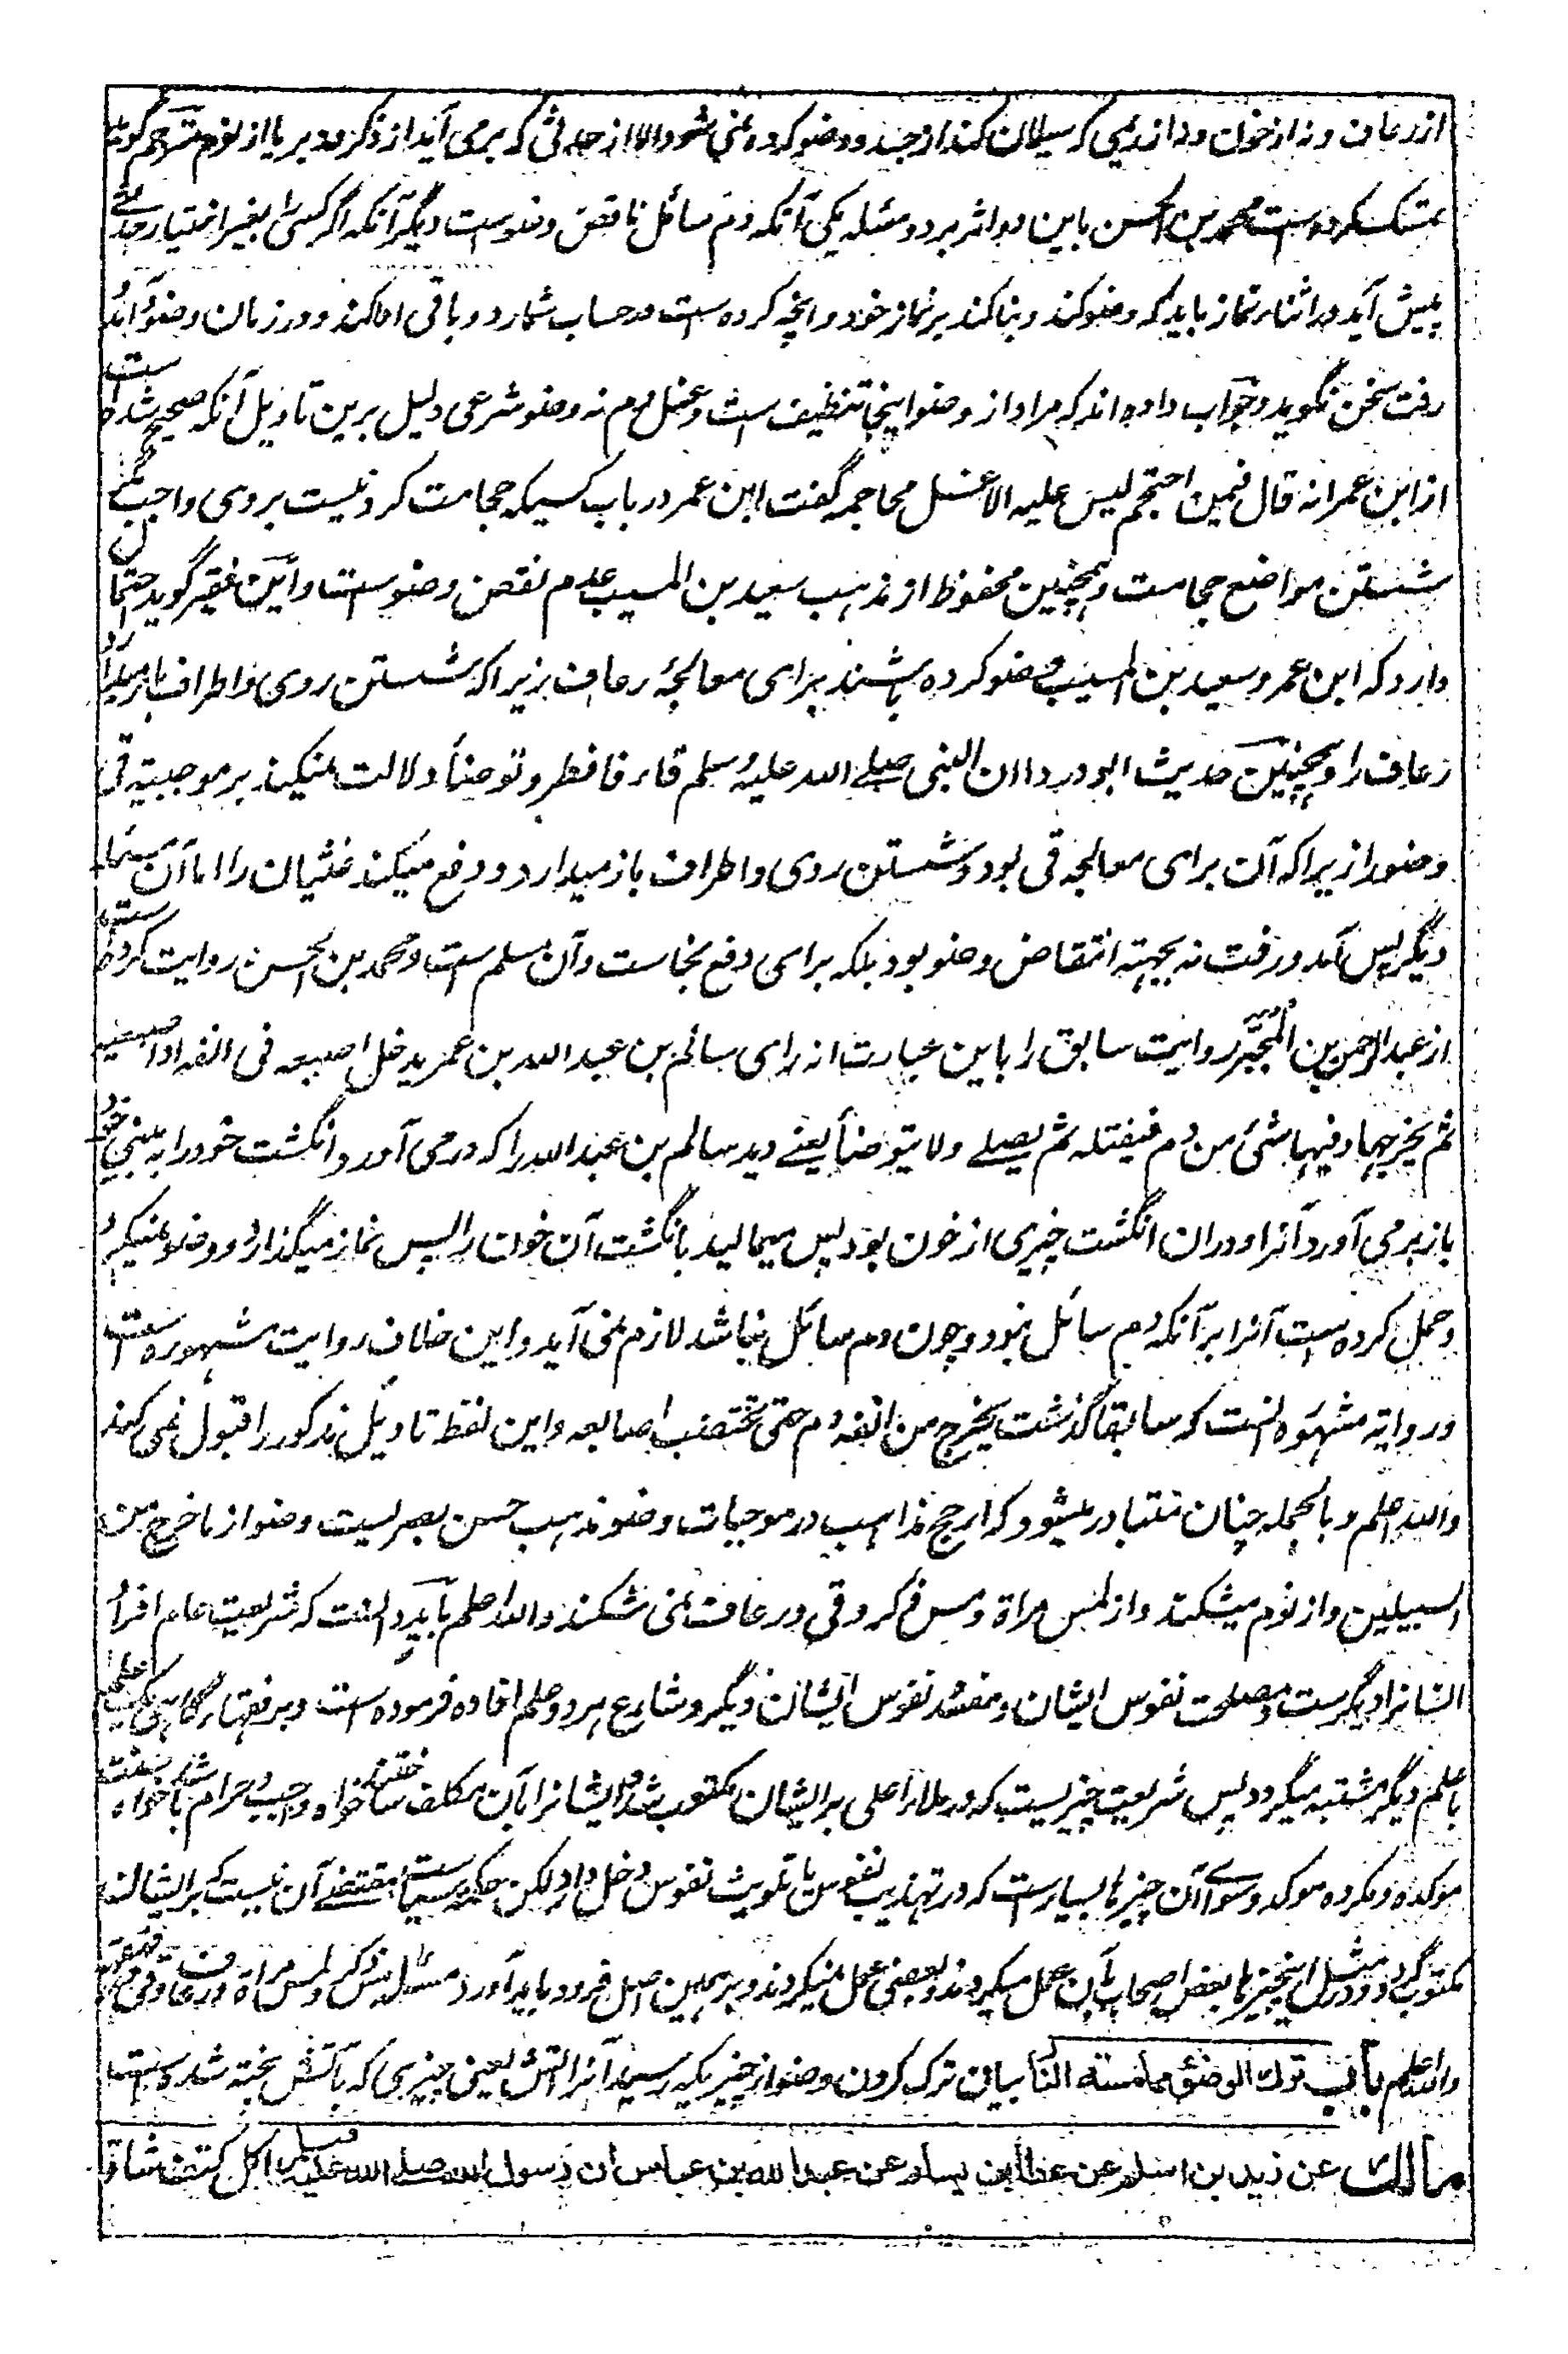 از رعاف و نه از خون و نه از ریمی که سیلان کند از جسد و وضو کرده نمی شود الا از حدثی که برمی آید از ذکر و دبر یا از نوم مترجم گوید
تمسک کرده ست محمد بن الحسن باین دو اثر بر دو مسئله یکی آنکه دم سائل ناقض وضوست دیگر آنکه اگر کسی را بغیر اختیار حدثی
پیش آید در اثناء نماز باید که وضو کند و بنا کند بر نماز خود و انچه کرده ست در حساب شمارد و باقی ادا کند و در زمان وضو و آمد
رفت سخن نگوید و جواب داده اند که مراد از وضو اینجا تنظیف ست و غسل دم نه وضو شرعی دلیل برین تاویل آنکه صحیح شده ست
از ابن عمر انه قال فیمن احتجم لیس علیه الا غسل محاجمه گفت ابن عمر در باب کسیکه حجامت کرد نیست بر وی واجب مگر
شستن مواضع حجامت و همچنین محفوظ از مذهب سعید بن المسیب عدم نقض وضوست و این فقیر گوید احتمال
دارد که ابن عمر و سعید بن المسیب وضو کرده باشند برای معالجهٔ رعاف زیرا که شستن روی و اطراف باز میدارد
رعاف را و همچنین حدیث ابو دردا ان النبی صلے الله علیه وسلم قاء فافطر و توضأ دلالت نمیکند بر موجبیته قی
وضو را زیرا که آن برای معالجه قی بود و شستن روی و اطراف باز میدارد و دفع میکند غثیان را اما آن
دیگر پس آمد و رفت نه بجهته انتقاض وضو بود بلکه برای دفع نجاست و آن مسلم ست و محمد بن الحسن روایت کرده ست
از عبد الرحمن بن المُجَبَّر روایت سابق را باین عبارت انه رای سالم بن عبد الله بن عمر یدخل اصبعه فی انفه او اصبعیه
ثم یخرجها و فیها شئ من دم فیفتله ثم یصلے ولا یتوضأ یعنے دید سالم بن عبد الله را که درمی آورد انگشت خود را به بینی خود
باز برمی آورد آنرا و دران انگشت چیزی از خون بود پس میمالید بانگشت آن خون را پس نماز میگذارد و وضو نمیکرد
و حمل کرده ست آنرا بر آنکه دم سائل نبود و چون دم سائل نباشد لازم نمی آید و این خلاف روایت مشهوره ست
و روایة مشهوره انست که سابقا گذشت یخرج من انفه دم حتی تختضب اصابعه و این لفظ تاویل مذکور را قبول نمی کند
والله اعلم و بالجمله چنان متبادر میشود که ارجح مذاهب در موجبات وضو مذهب حسن بصریست وضو از ما خرج من
السبیلین و از نوم میشکند و از لمس مراة و مس ذکر و قی و رعاف نمی شکند والله اعلم باید دانست که شریعت عام افراد
انسان را دیگرست و مصلحت نفوس ایشان و مفسده نفوس ایشان دیگر و شارع هر دو علم افاده فرموده ست و بر فقها گاهی یک علم
با علم دیگر مشتبه میگردد پس شریعت چیزیست که در ملاء اعلی بر ایشان مکتوب شد و ایشانرا بآن مکلف ساختند خواه واجب و حرام باشد خواه سنت
موکده و مکروه موکد و سوای آن چیزها بسیارست که در تهذیب نفوس یا تلویث نفوس دخل دارد لکن حکمت سیاست مقتضے آن نیست که بر ایشان
مکتوب گردد و در مثل این چیزها بعض اصحاب بآن عمل میکردند و بعضی عمل نمیکردند و بر همین اصل فرود باید آورد مسئله مس ذکر و لمس مراة و رعاف و قی
والله اعلم باب ترك الوضوء مما مسته النار بیان ترک کردن وضو از چیزیکه رسیده آنرا آتش یعنی چیزی که بآتش پخته شده ست
مالك عن زيد بن اسلم عن عطاء بن يسار عن عبد الله بن عباس ان رسول الله صلے الله عليه وسلم اكل كتف شاة